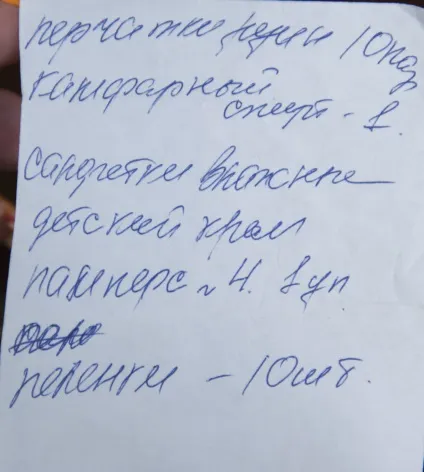 перчатки 10пар
камфарный
спирт - 1.
салфетки влажные
детский крем
памперс ~ 4. 1 уп
пеленки - 10шт.